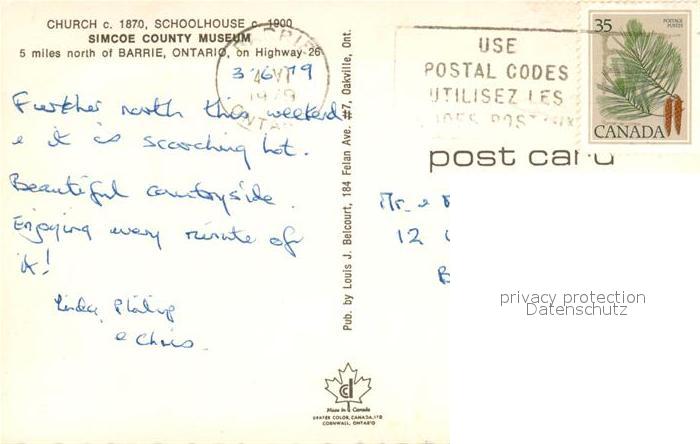 CHURCH c. 1870, SCHOOLHOUSE c. 1900
SIMCOE COUNTY MUSEUM
5 miles north of BARRIE, ONTARIO, on Highway 26
3 6 79
Further north this weekend
& it is scorching hot.
Beautiful countryside.
Enjoying every minute of
it!
Linda, Philip
& Chris.
Pub. by Louis J. Belcourt, 184 Felan Ave. #7, Oakville, Ont.
BARRIE
VI
1979
ONTARIO
USE
POSTAL CODES
UTILISEZ LES
CODES POSTAUX
35
POSTAGE
POSTES
CANADA
post card
Mr. &
12
privacy protection
Datenschutz
Made in Canada
GRATER COLOR, CANADA, LTD
CORNWALL, ONTARIO